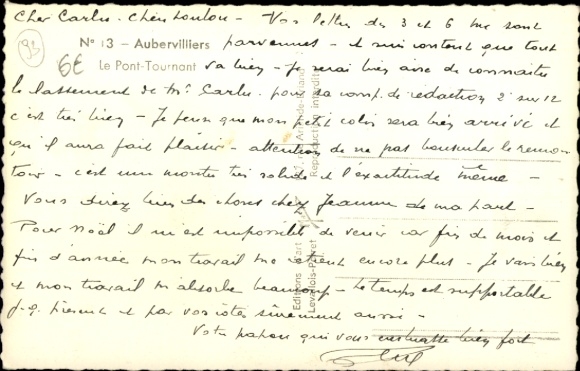 Cher Carlu. Chère Loulou - Vos lettres du 3 et 6 me sont
parvenues - et suis content que tout
93
N° 13 - Aubervilliers
6€
Le Pont-Tournant
va bien - Je serai bien aise de connaître
le classement de Mr Carlu. pour sa comp. de rédaction 2 sur 12
c'est très bien - Je pense que mon petit colis sera bien arrivé et
qu'il aura fait plaisir - attention de ne pas bousculer le remon
toir - c'est une montre très solide et l'exactitude même -
Vous direz bien des choses chez Jeanne de ma part -
Pour Noël il m'est impossible de venir car fin de mois et
fin d'année mon travail me retient encore plus - Je vais bien
et mon travail m'absorbe beaucoup - Le temps est supportable
j.q. présent et par vos côtés sûrement aussi -
Votre papa qui vous embrasse bien fort
Editions d'Art
Levallois-Perret
Reproduction interdite